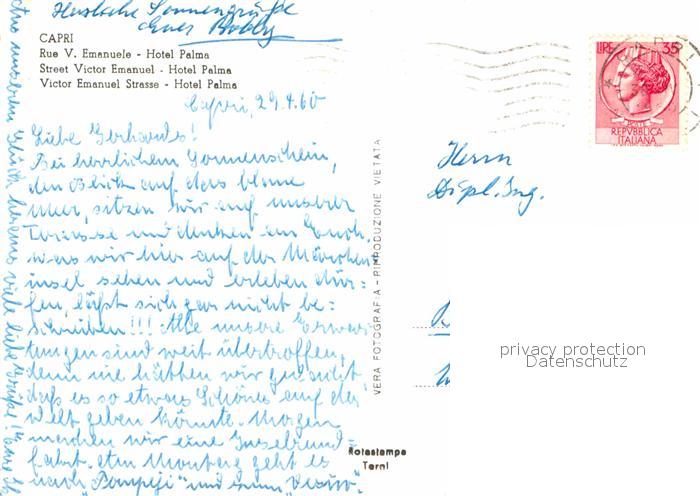 Herzliche Sonnengrüße
Euer Bobby
CAPRI
Rue V. Emanuele - Hotel Palma
Street Victor Emanuel - Hotel Palma
Victor Emanuel Strasse - Hotel Palma
Capri, 29.4.60
Liebe Gerhards!
Bei herrlichem Sonnenschein,
den Blick auf das blaue
Meer, sitzen wir auf unserer
Terrasse und denken an Euch.
was wir hier auf der Märchen
insel sehen und erleben dür=
fen, läßt sich gar nicht be=
schreiben!!! Alle unsere Erwar
tungen sind weit übertroffen,
denn nie hätten wir gedacht,
daß es so etwas Schönes auf der
Welt geben könnte. Morgen
machen wir eine Inselrund=
fahrt. Am Montag geht es
nach "Pompeji" und zum "Vesuv".
viele liebe Grüße! Eure
VERA FOTOGRAFIA - RIPRODUZIONE VIETATA
Rotastampa
Terni
LIRE 35
POSTE
REPVBBLICA
ITALIANA
Herrn
Dipl. Ing.
privacy protection
Datenschutz